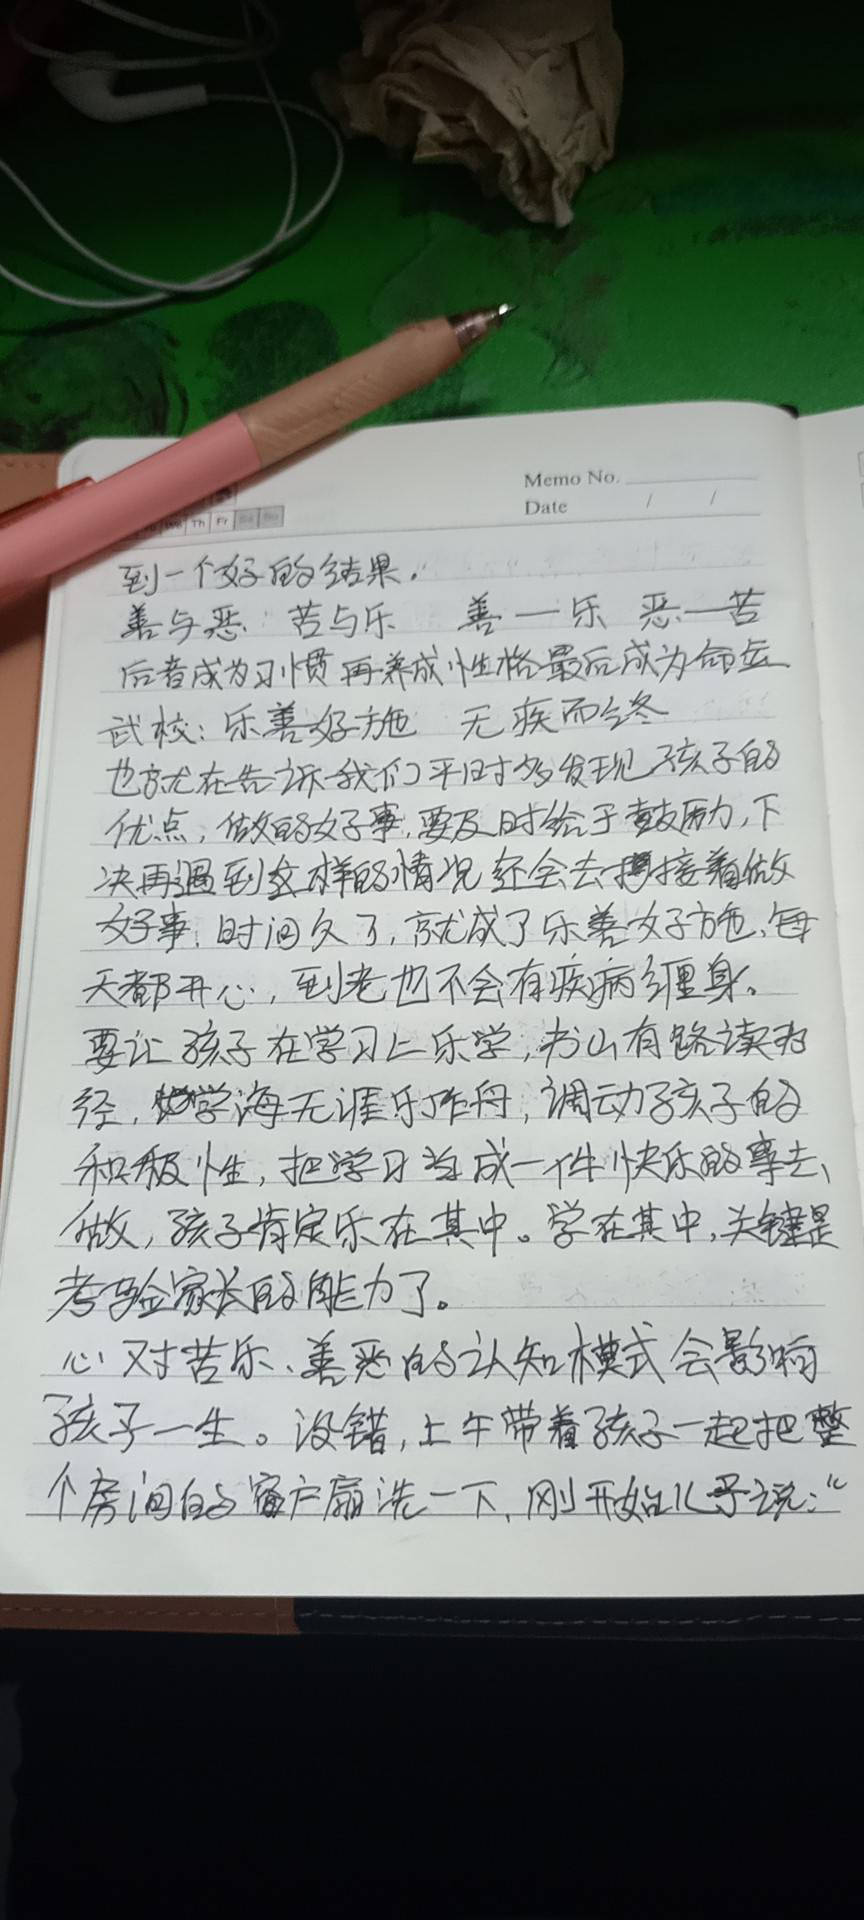 Memo No.
Date / /
We Th Fr Sa Su
到一个好的结果.
善与恶 苦与乐 善—乐 恶—苦
后者成为习惯再养成性格最后成为命运
武校:乐善好施 无疾而终
也就在告诉我们平时多发现孩子的
优点,做的好事,要及时给于鼓励,下
决再遇到这样的情况还会去接着做
好事,时间久了,就成了乐善好施、每
天都开心,到老也不会有疾病缠身。
要让孩子在学习上乐学,书山有路读为
径,学海无涯乐作舟,调动孩子的
积极性,把学习当成一件快乐的事去、
做,孩子肯定乐在其中。学在其中,关键是
考验家长的能力了。
心对苦乐、善恶的认知模式会影响
孩子一生。没错,上午带着孩子一起把整
个房间的窗户扇洗一下,刚开始儿子说:“